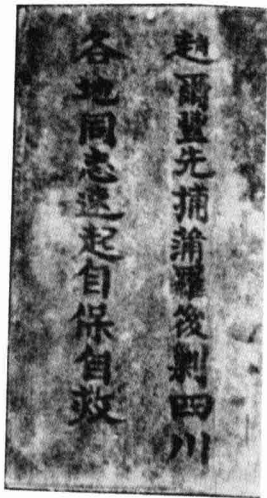 趙爾豐先捕蒲羅後剿四川
各地同志速起自保自救